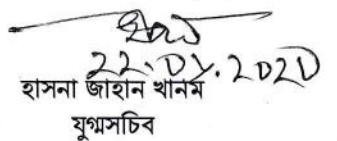 22.01.2020
হাসনা জাহান খানম
যুগ্মসচিব